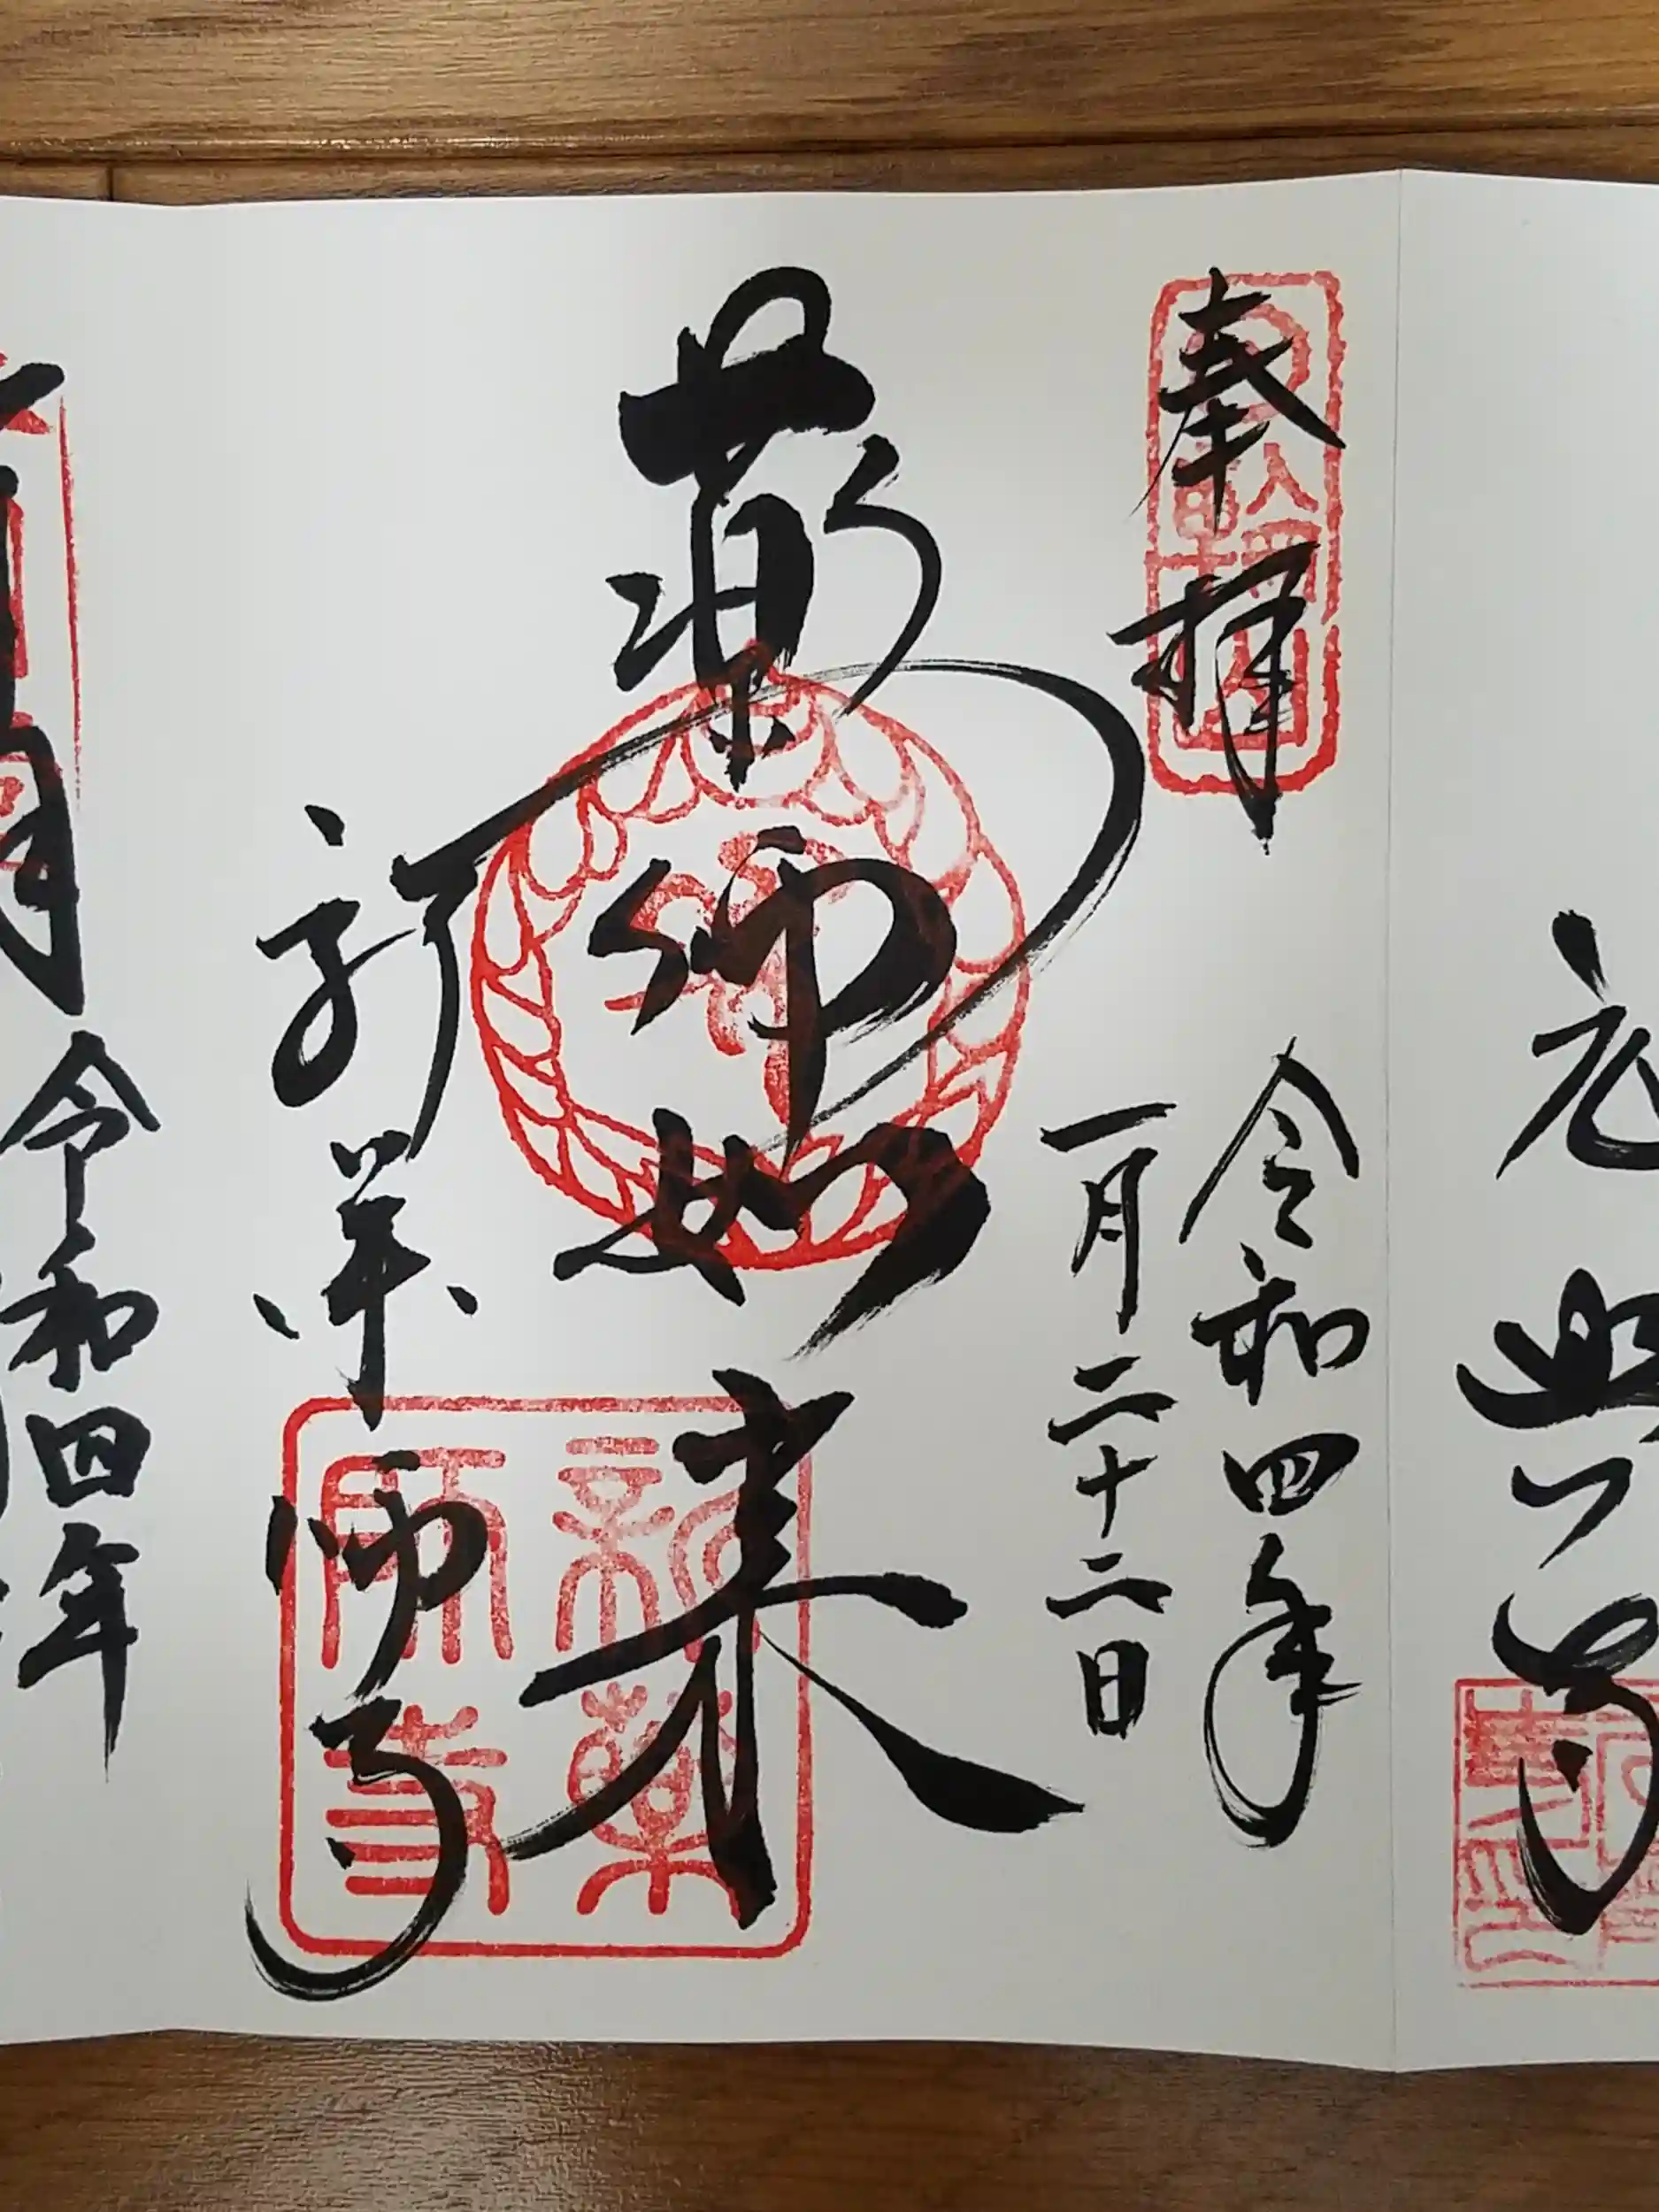 元興寺
奉拝
令和四年
一月二十二日
薬師如来
新薬師寺
新薬
師寺
令和四年